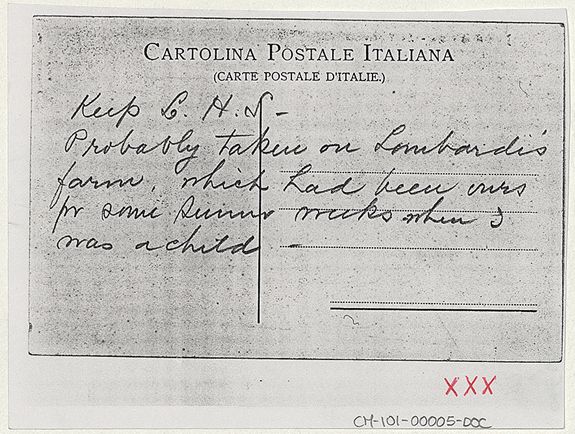 CARTOLINA POSTALE ITALIANA
(CARTE POSTALE D'ITALIE.)
Keep L. H. S -
Probably taken on Lombardi's
farm, which had been ours
for some summer weeks when I
was a child -
XXX
CM-101-00005-DOC